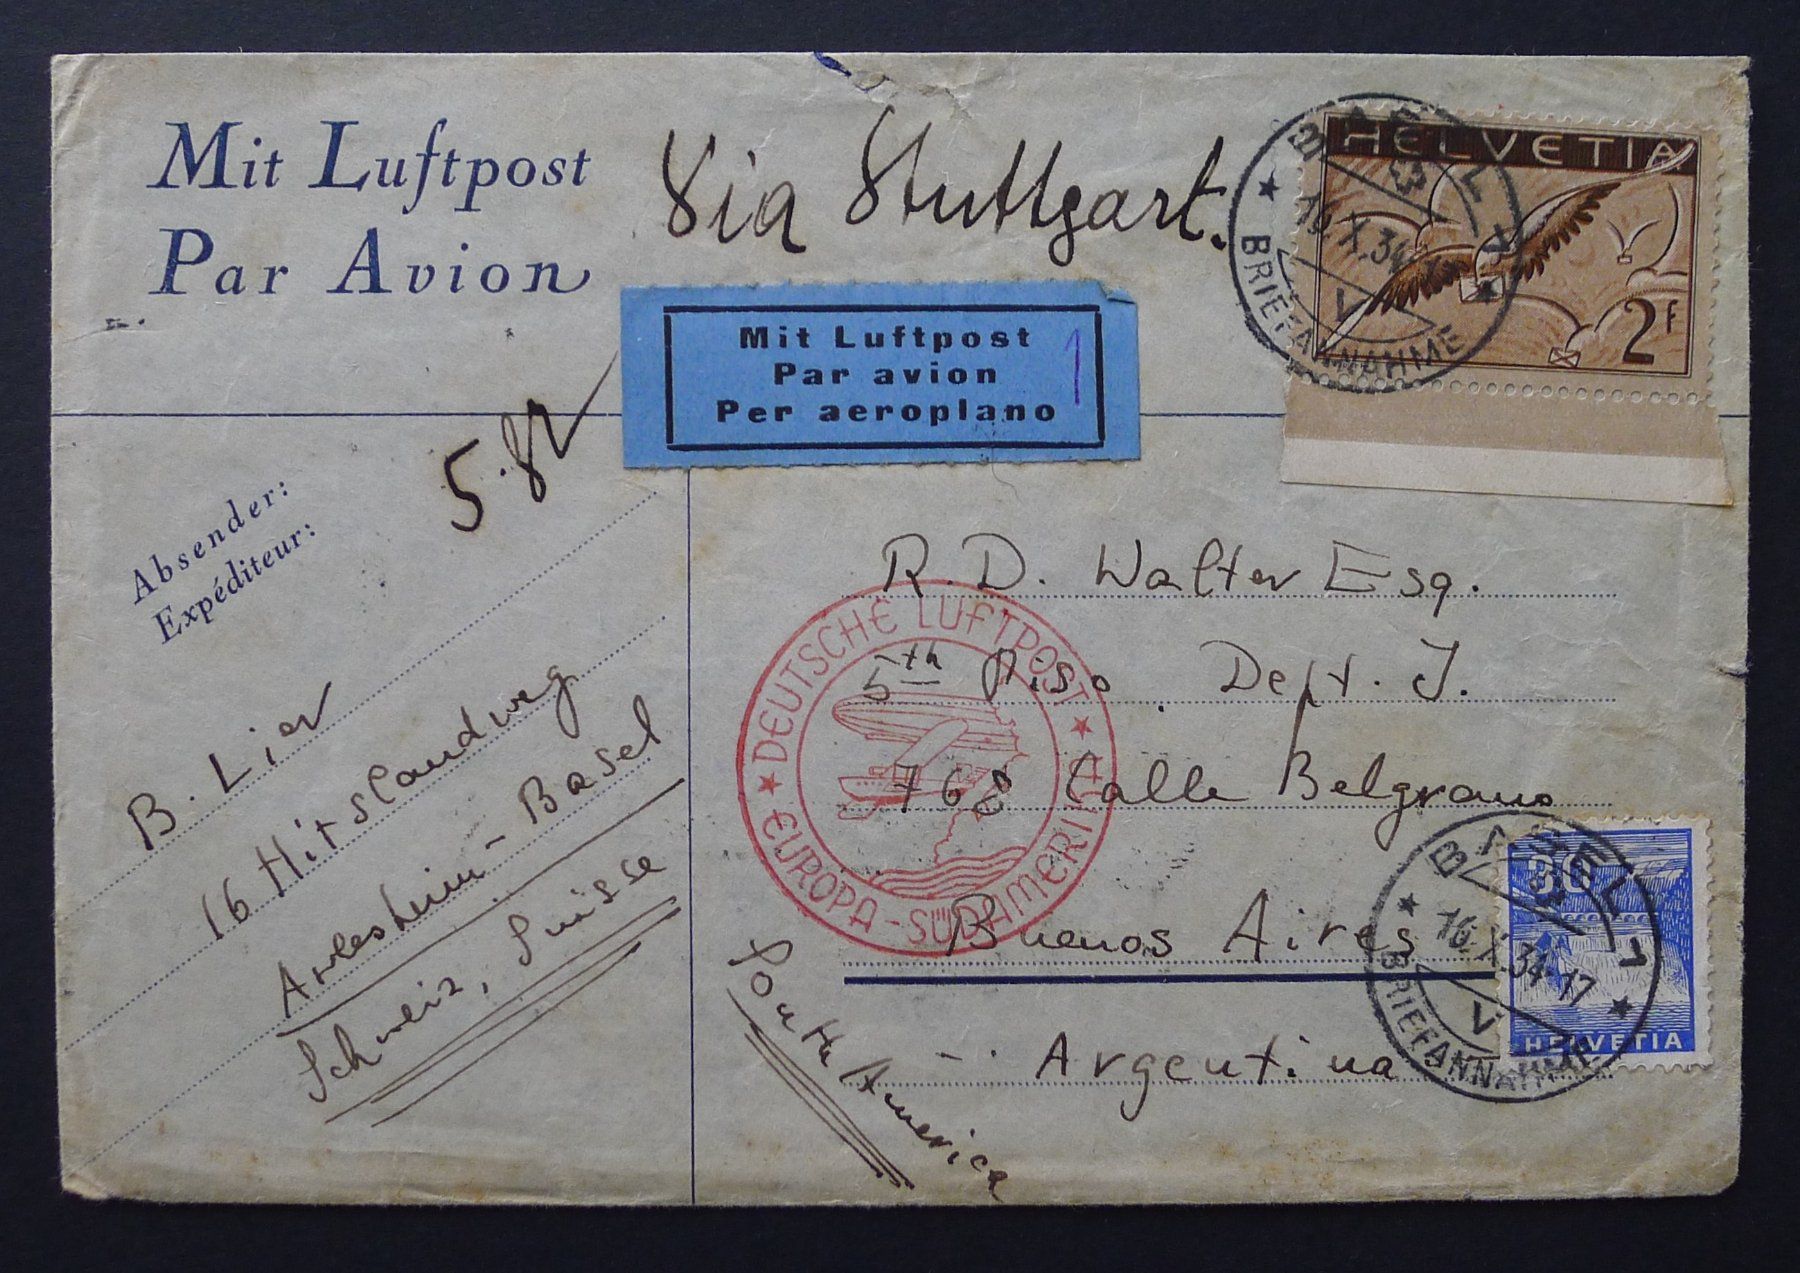 Mit Luftpost
Par Avion
Via Stuttgart.
HELVETIA
2F
BASEL
3
V
BRIEFANNAHME
Mit Luftpost
Par avion
Per aeroplano
1
Absender:
Expéditeur:
5.82
B. Lier
16 Hitslandweg
Arlesheim-Basel
Schweiz, Suisse
R. D. Walter Esq.
5th Piso Dept. J.
768 Calle Belgrano
Buenos Aires
- Argentina
South America
DEUTSCHE LUFTPOST
EUROPA-SÜDAMERIKA
30
HELVETIA
BASEL 1
16.X.34-17
V
BRIEFANNAHME